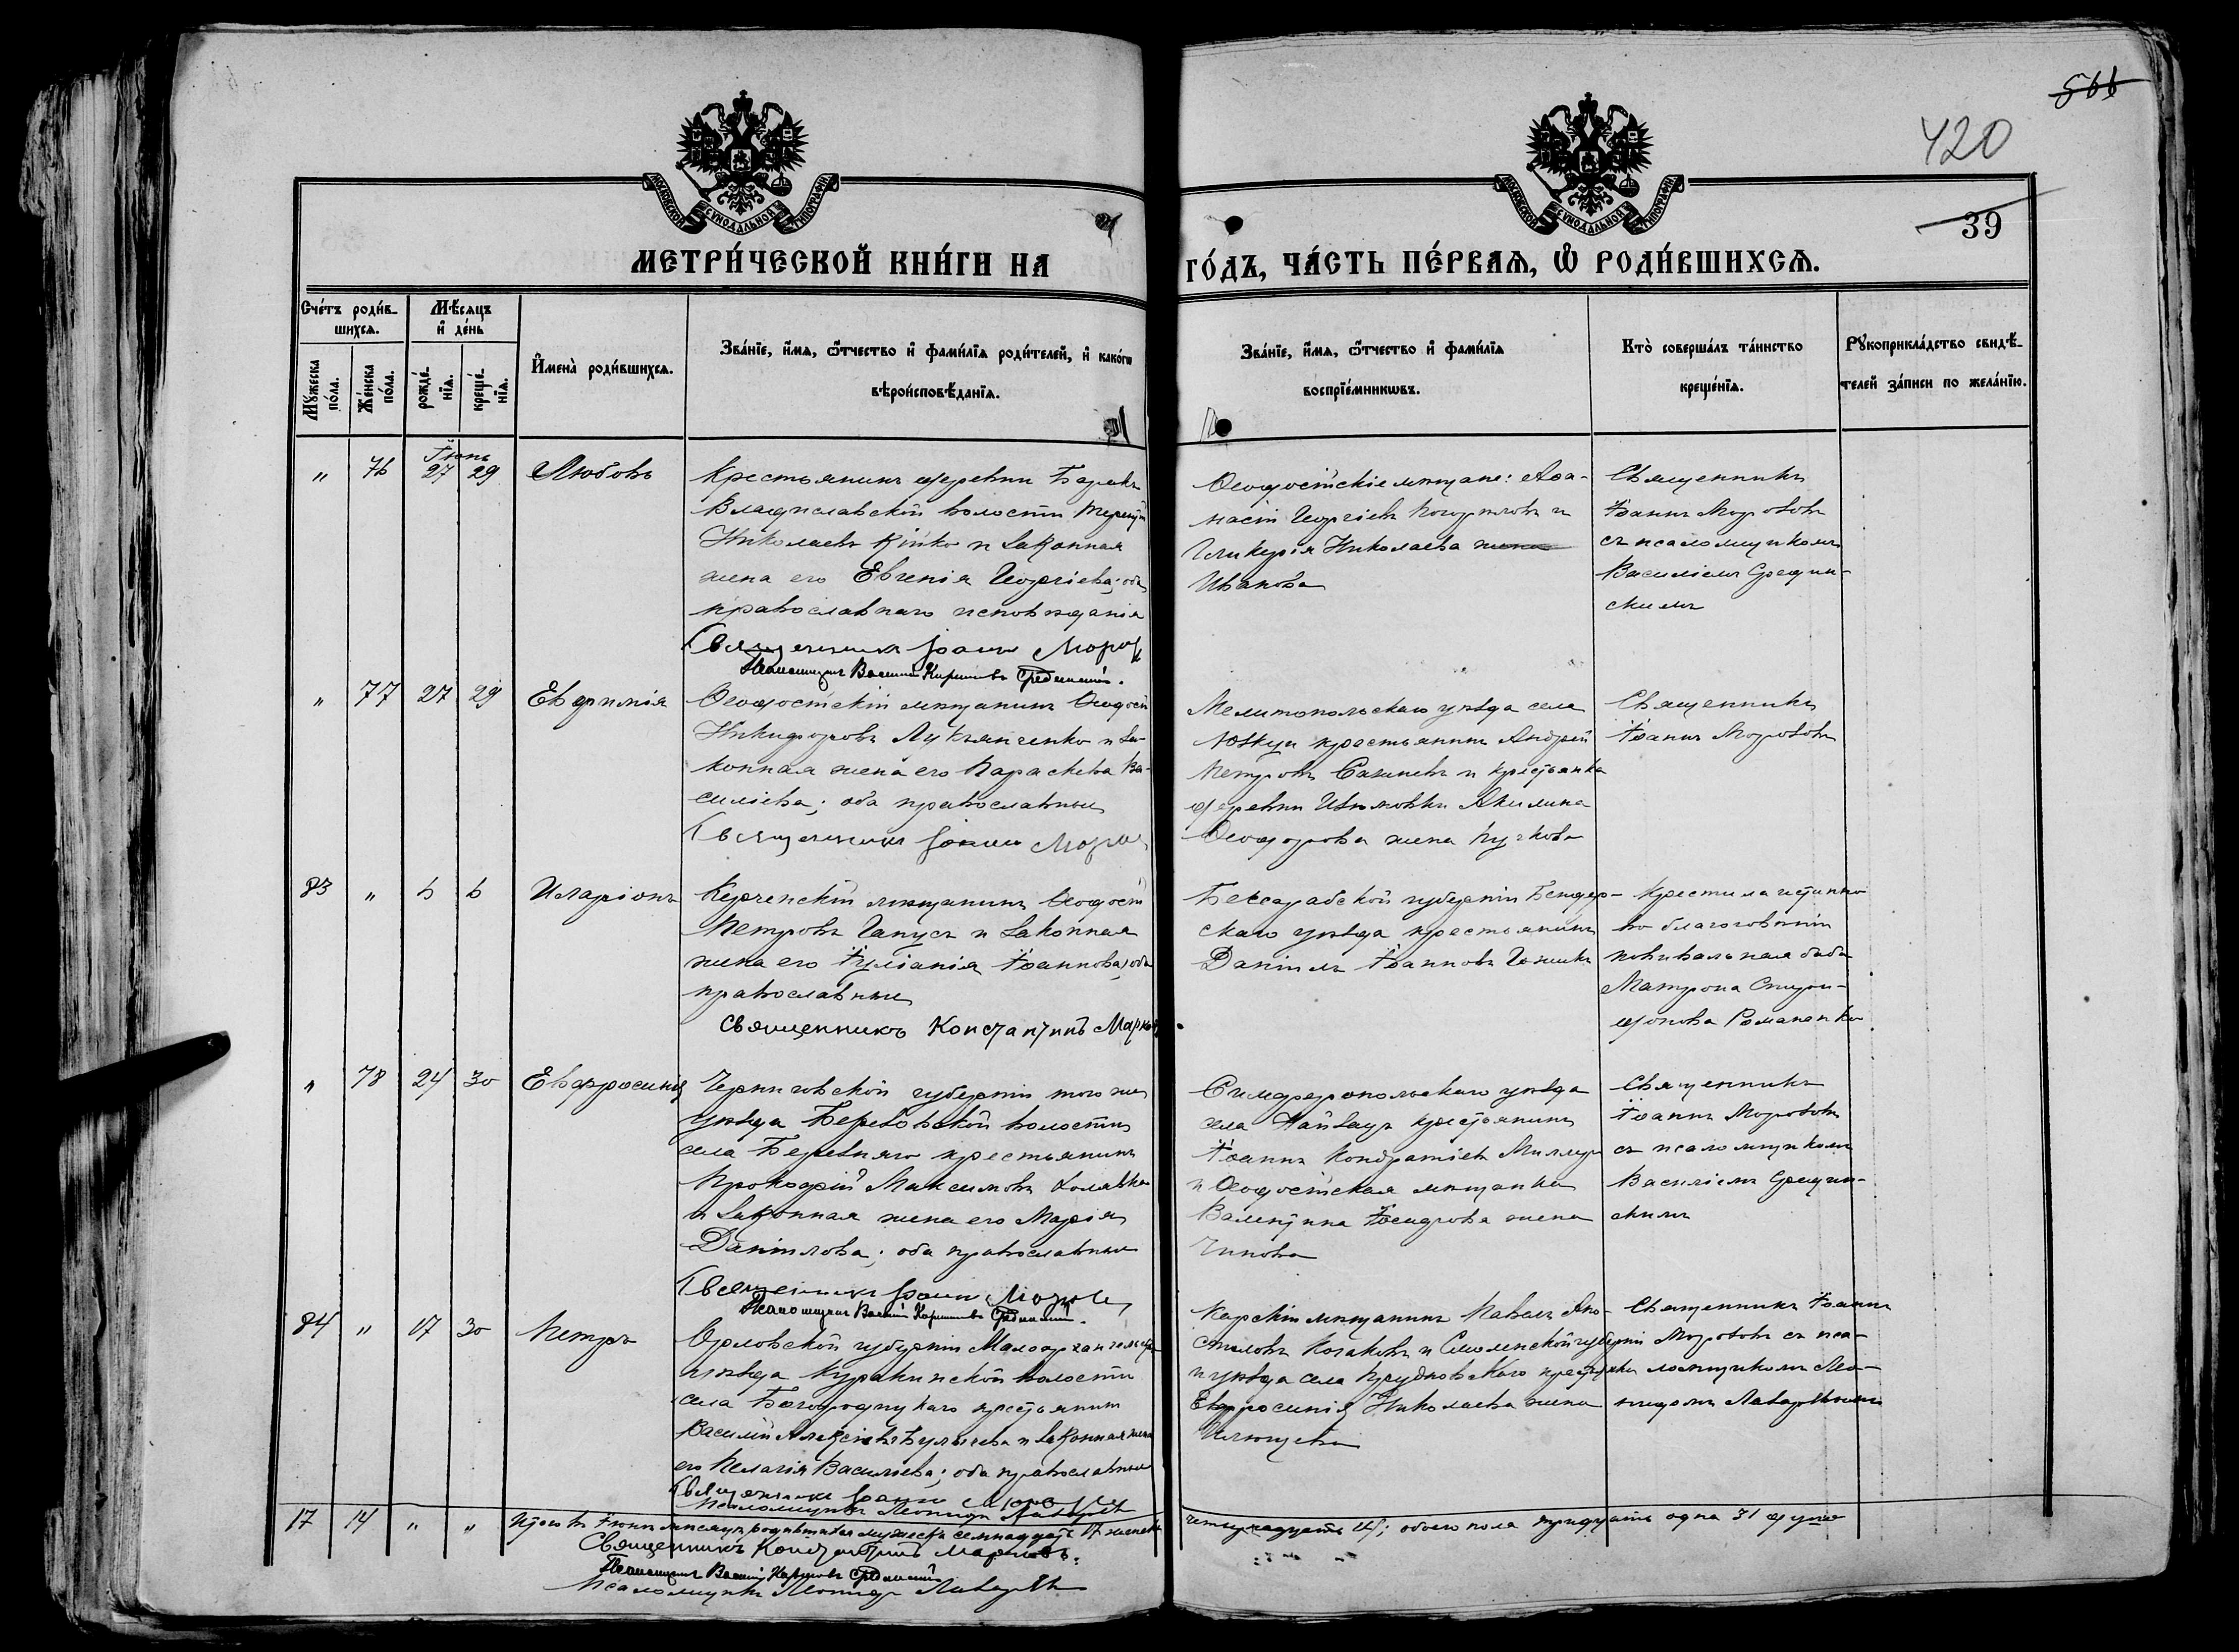 566
420
39
МОСКОВСКОЙ СѴНОДАЛЬНОЙ ТИПОГРАФІИ
МОСКОВСКОЙ СѴНОДАЛЬНОЙ ТИПОГРАФІИ
МЕТРИ́ЧЕСКОЙ КНИ́ГИ НА ГО́ДЪ, ЧА́СТЬ ПЕ́РВАѦ, Ѡ РОДИ́ВШИХСѦ.
Сче́тъ роди́вшихсѧ.
Мꙋ́жеска по́ла.
Же́нска по́ла.
Мѣ́сѧцъ и҆ де́нь
рожде́нїѧ.
креще́нїѧ.
И҆мена̀ роди́вшихсѧ.
Зва́нїе, и҆́мѧ, ѻ҆́тчество и҆ фами́лїѧ роди́телей, и҆ како́гѡ вѣроисповѣ́данїѧ.
Зва́нїе, и҆́мѧ, ѻ҆́тчество и҆ фами́лїѧ воспрїе́мникѡвъ.
Кто̀ соверша́лъ та́инство креще́нїѧ.
Рꙋкоприкла́дство свидѣ́телей за́писи по жела́нїю.
Іюнь
" 76 27 29 Любовь
Крестьянинъ деревни
Владиславской волости
Николаевъ и законная
жена его Евгенія Георгіева; оба
православнаго исповѣданія
Священникъ Іоаннъ Мороз
Псаломщикъ Василій
Ѳеодосійскіе мѣщане: Аѳанасій Георгіевъ и
Гликерія Николаева жена
Иванова
Священникъ
Іоаннъ Морозовъ
съ псаломщикомъ
Василіемъ Средин-
скимъ
" 77 27 29 Евфимія
Ѳеодосійскій мѣщанинъ Ѳеодосій
Никифоровъ Лукьянченко и за-
конная жена его Параскева Ва-
силіева; оба православные
Священникъ Іоаннъ Мороз
Мелитопольскаго уѣзда села
крестьянинъ Андрей
Петровъ и крестьянка
деревни Акилина
Ѳеодорова жена
Священникъ
Іоаннъ Морозовъ
83 " 6 6 Иларіонъ
Керченскій мѣщанинъ Ѳеодосій
Петровъ Гапусъ и законная
жена его Іуліанія Іоаннова; оба
православные
Священникъ Константинъ Марковъ
Бессарабской губерніи Бендер-
скаго уѣзда крестьянинъ
Даніилъ Іоанновъ
Крестила
повивальная баба
Матрона Спири-
донова Романенко
" 78 24 30 Евфросинія
Черниговской губерніи того же
уѣзда Березовской волости
села крестьянинъ
Прокофій Максимовъ
и законная жена его Марія
Даніилова; оба православные
Священникъ Іоаннъ Мороз
Псаломщикъ Василій
Симферопольскаго уѣзда
села крестьянинъ
Іоаннъ Кондратіевъ Миллеръ
и Ѳеодосійская мѣщанка
Валентина жена
Священникъ
Іоаннъ Морозовъ
съ псаломщикомъ
Василіемъ Средин-
скимъ
84 " 17 30 Петръ
Орловской губерніи Малоархангельск.
уѣзда Куракинской волости
села Богородицкаго крестьянинъ
Василій Алексіевъ и законная жена
его Пелагія Василіева; оба православные
Священникъ Іоаннъ Мороз
Псаломщикъ Леонидъ Лазаревъ
мѣщанинъ Павелъ Апо-
столовъ Казаковъ и Смоленской губерніи
и уѣзда села крестьянка
Евфросинія Николаева жена
Священникъ Іоаннъ
Морозовъ съ пса-
ломщикомъ Лео-
нидомъ Лазаревымъ
17 14 " " Итого въ Іюнѣ мѣсяцѣ родившихся мужеска семнадцать 17 женска
четырнадцать 14; обоего пола тридцать одна 31 душа
Священникъ Константинъ Марковъ.
Псаломщикъ Василій
Псаломщикъ Леонидъ Лазаревъ